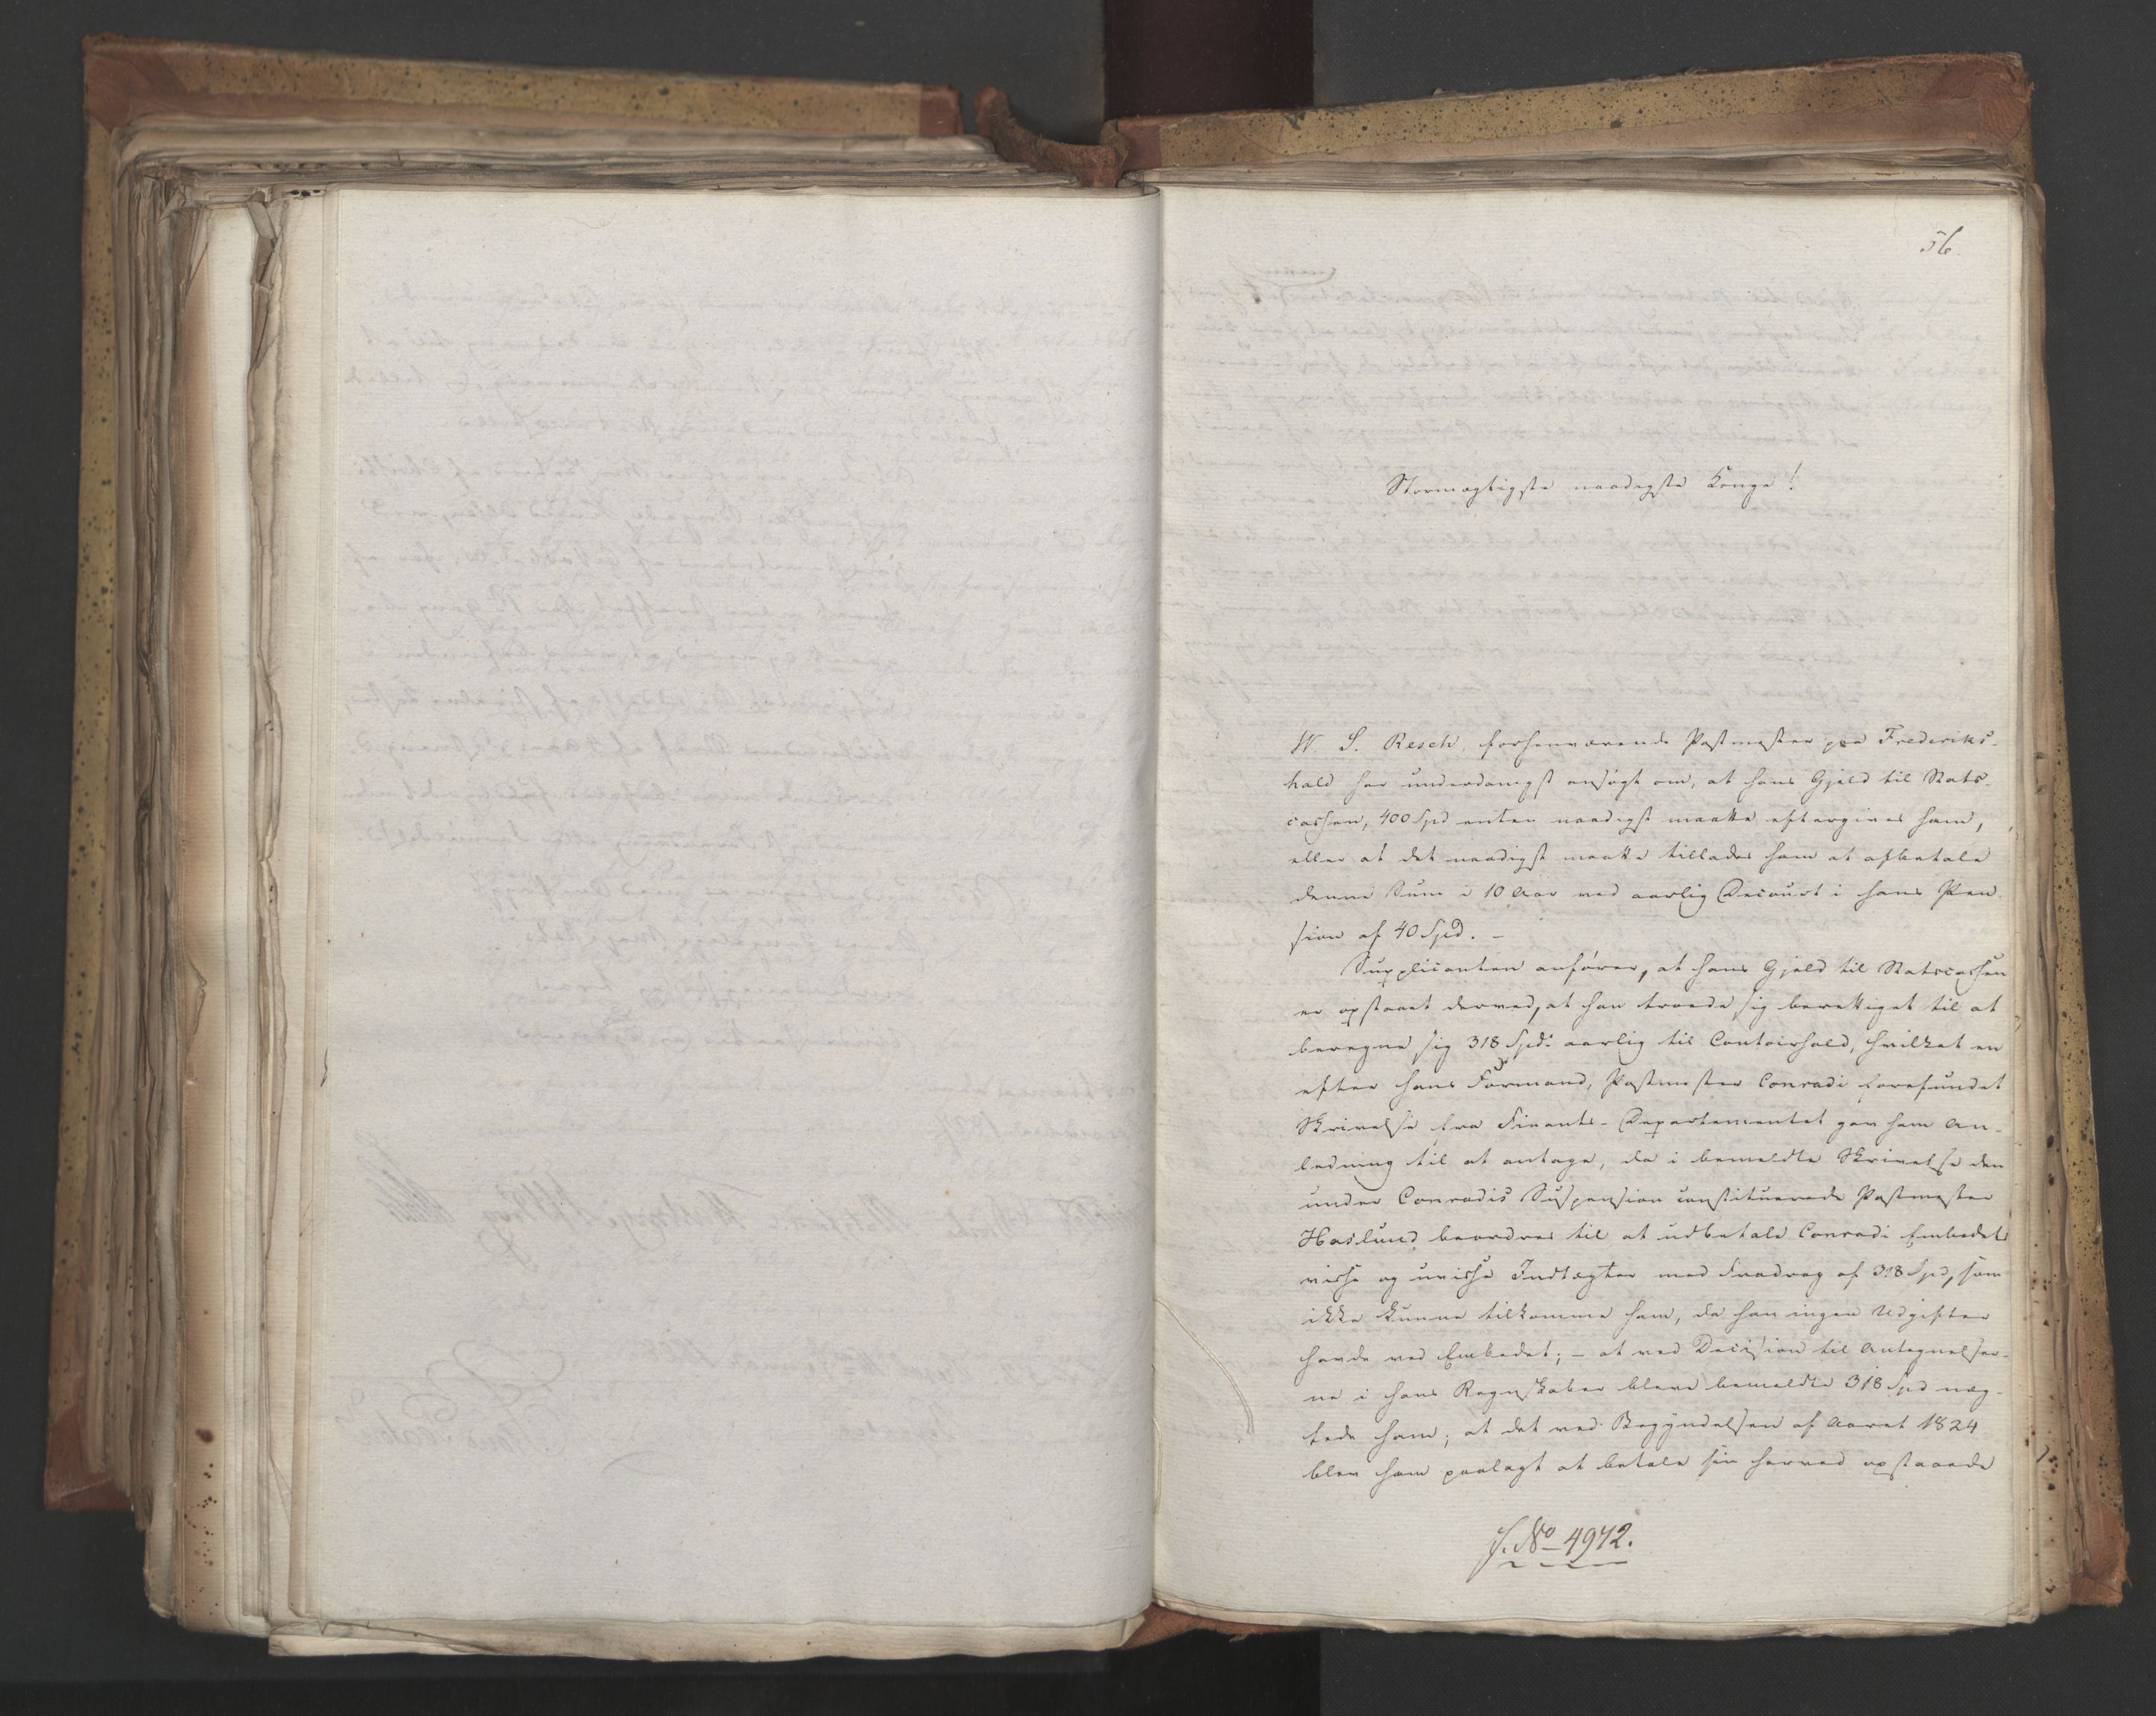 56.
Stormægtigste naadigste Konge!
W. S. Resch, forhenværende Postmester paa Frederiks-
hald har underdanigst ansøgt om, at hans Gjeld til Stats-
cassen, 400 Spd enten naadigst maatte eftergives ham,
eller at det naadigst maatte tillades ham at afbetale
denne Sum i 10 Aar ved aarlig Decourt i hans Pen
sion af 40 Spd. –
Supplicanten anfører, at hans Gjeld til Statscassen
er opstaaet derved, at han troede sig berettiget til at
beregne sig 318 Spd. aarlig til Contoirhold, hvilket en
efter hans Formand, Postmester Conradi forefundet
Skrivelse fra Finants-Departementet gav ham An-
ledning til at antage, da i bemeldte Skrivelse den
under Conradis Suspension constituerede Postmester
Haslund beordres til at udbetale Conradi Embedets
visse og uvisse Indtægter med Fradrag af 318 Spd, som
ikke kunne tilkomme ham, da han ingen Udgifter
havde ved Embedet; – at ved Decision til Antegnelser-
ne i hans Regnskaber bleve bemeldte 318 Spd næg-
tede ham; at det ved Begyndelsen af Aaret 1824
blev ham paalagt at betale sin herved opstaaede
J. No 4972.